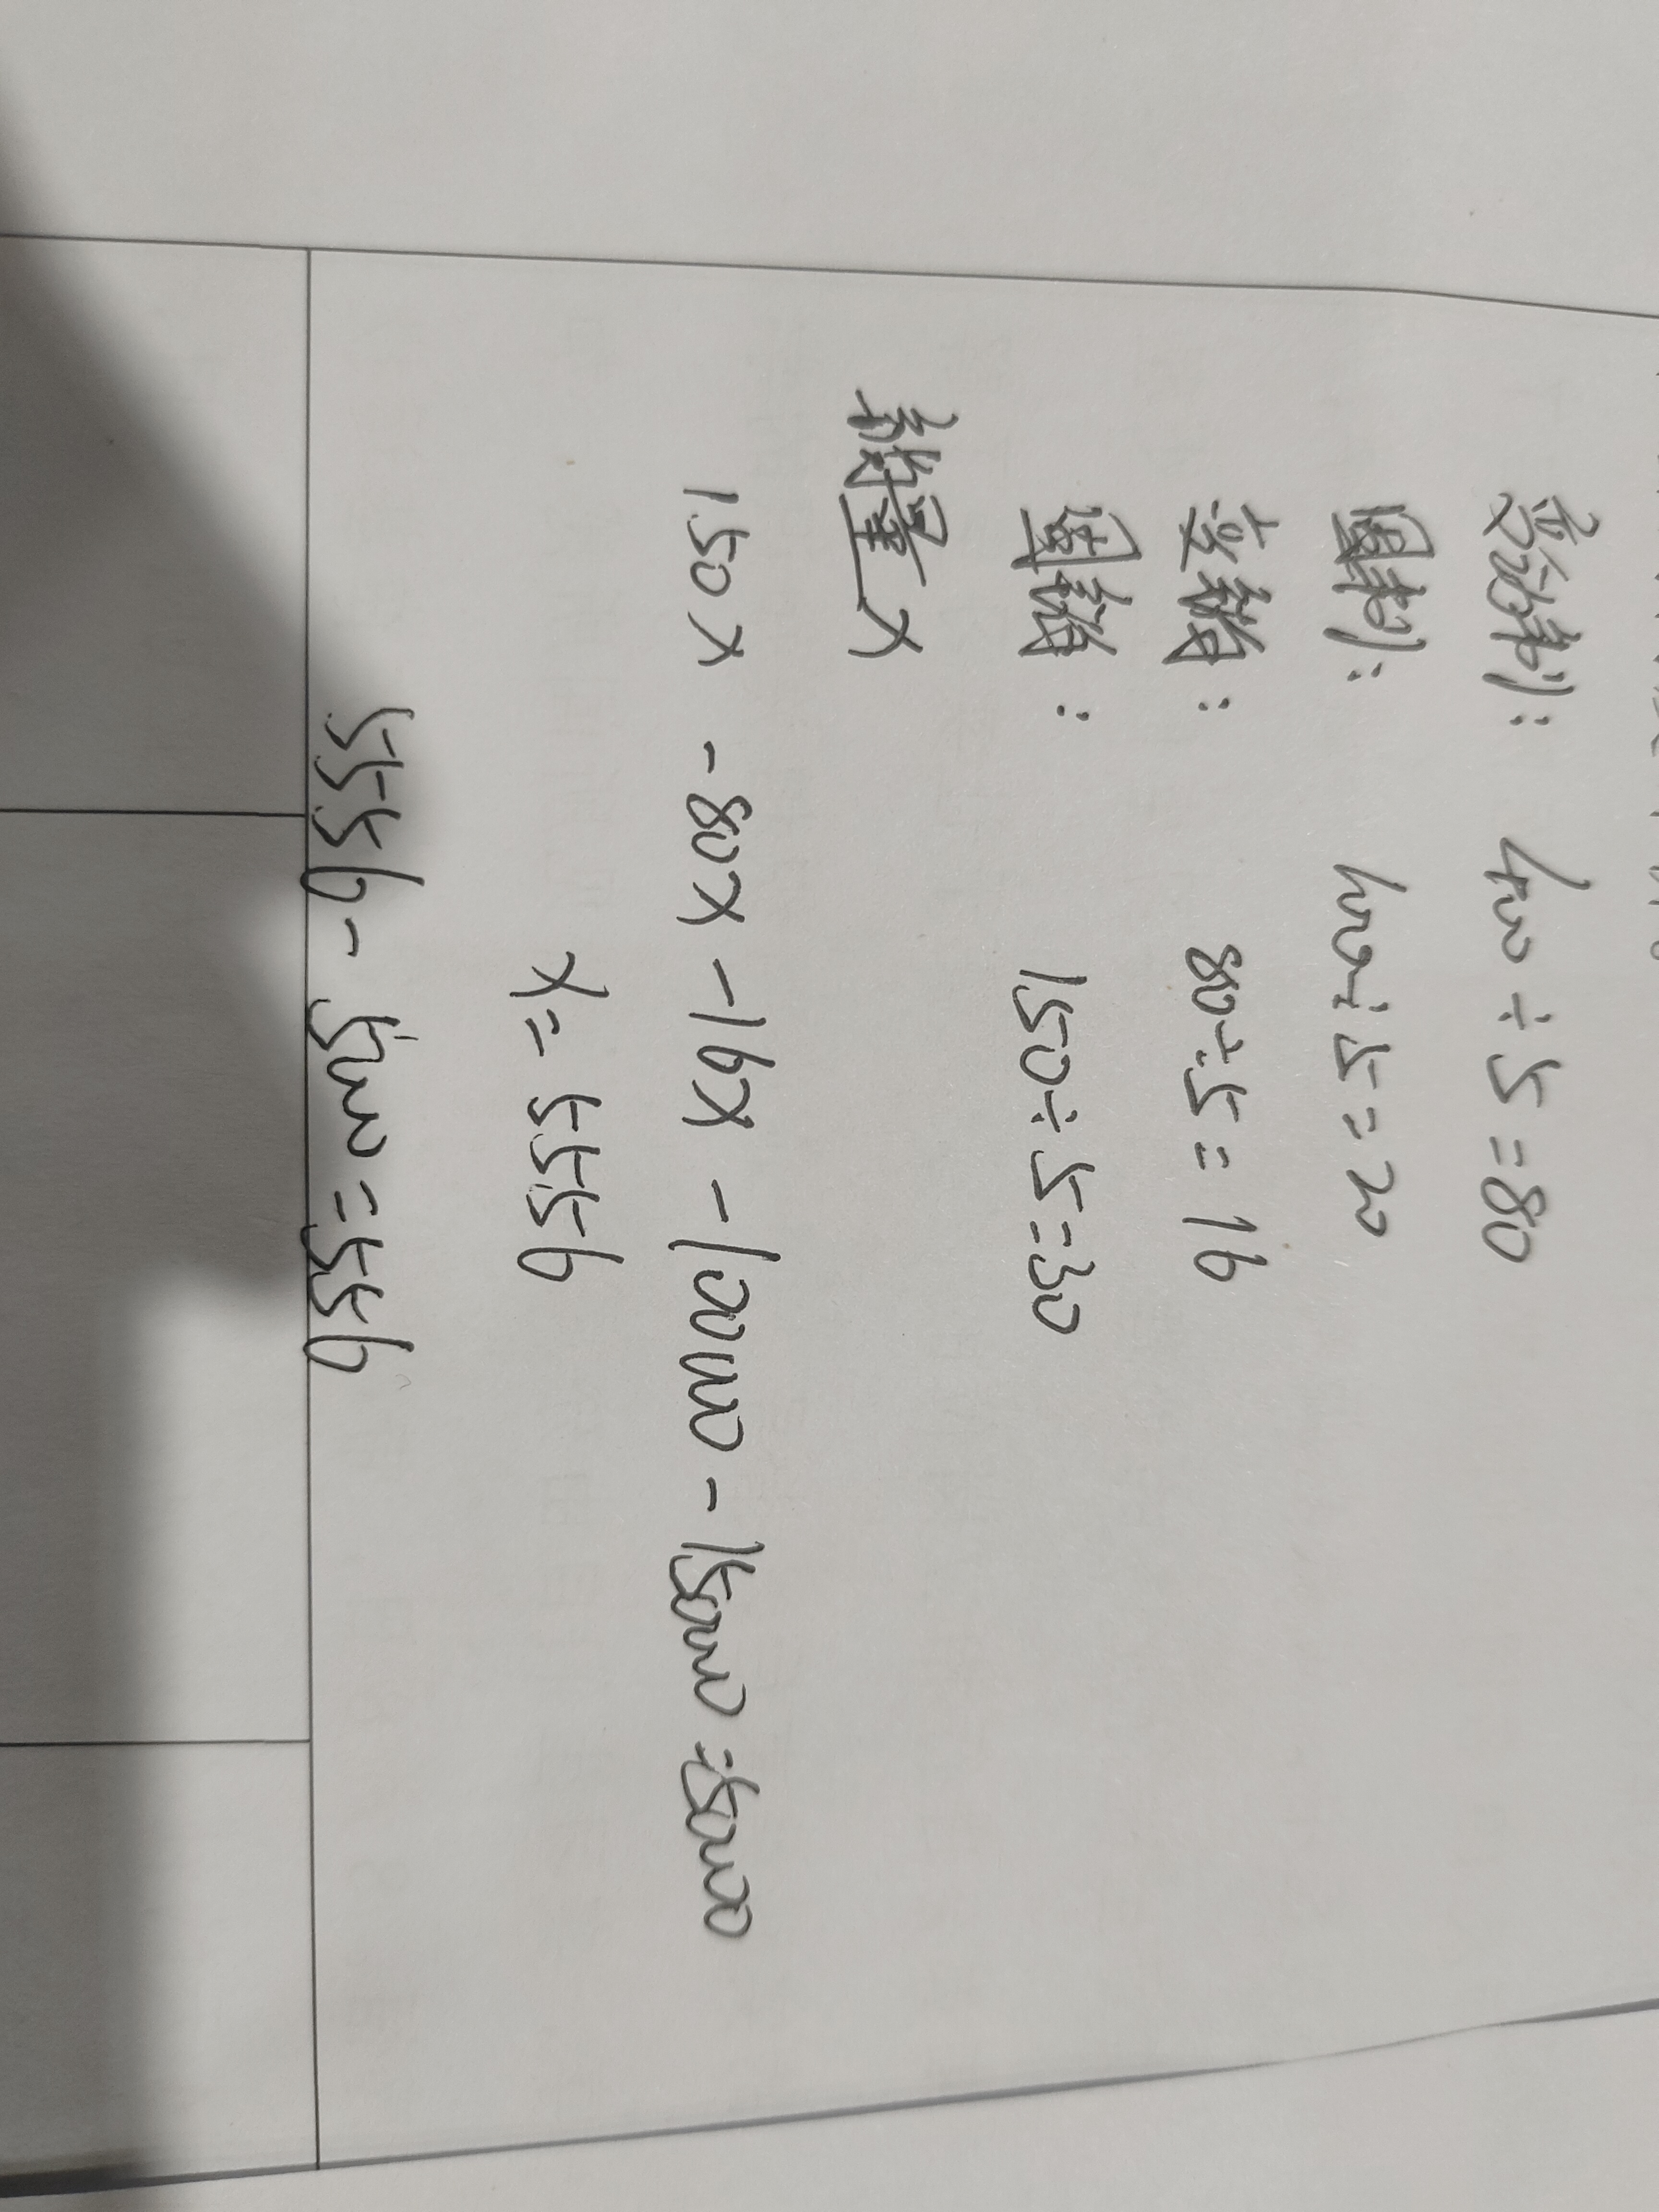 变制: 400÷5=80
固制: 100÷5=20
变销: 80÷5=16
固销: 150÷5=30
销量x
150x -80x -16x -100000 -150000=50000
x=5556
5556-5000=556